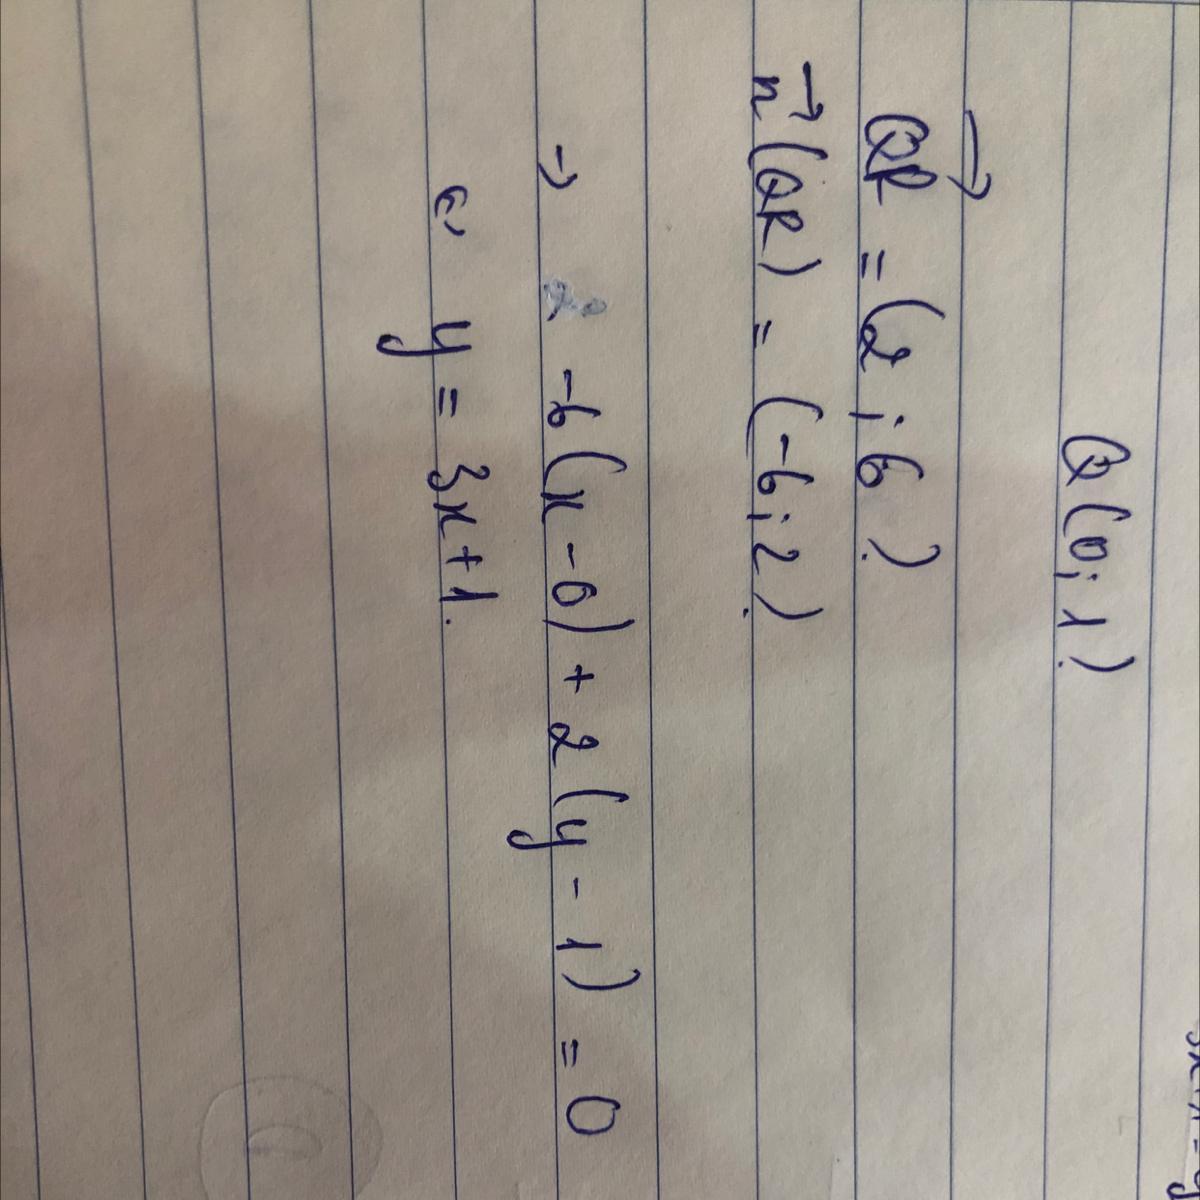 Q(0; 1)
→
QR = (2; 6)
→
n(QR) = (-6; 2)
→ -6(x-0) + 2(y-1) = 0
y = 3x+1.